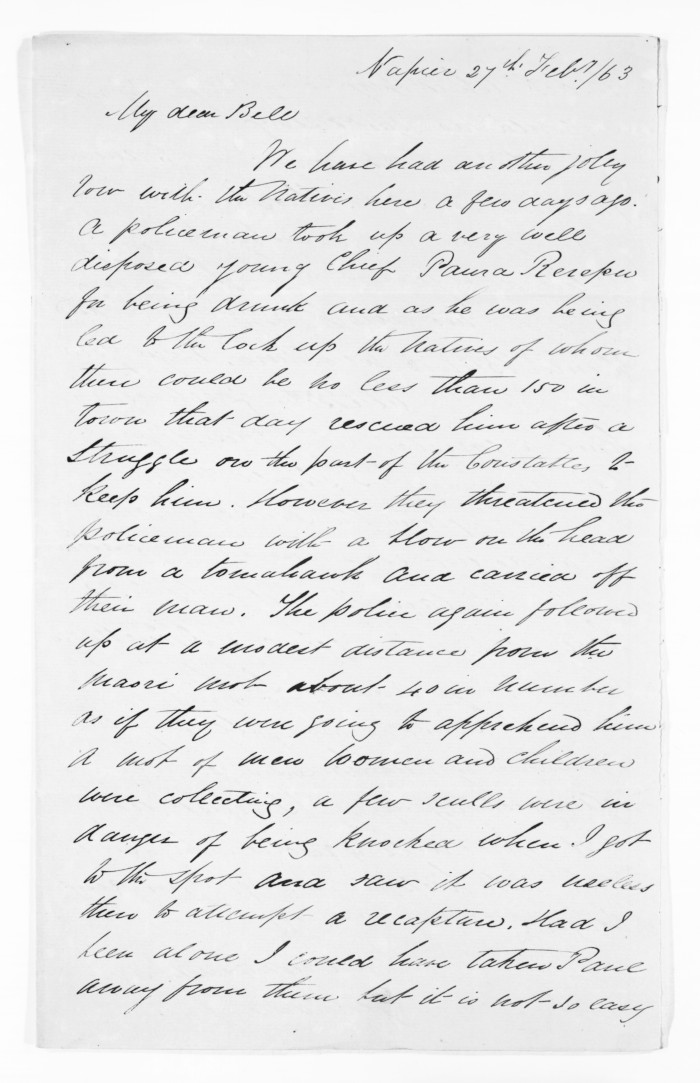 Napier 27th Feby/63
My dear Bell
We have had another jolly
row with the Natives here a few days ago.
A policeman took up a very well
disposed young Chief Paura Rerepu
for being drunk and as he was being
led to the lock up the natives of whom
there could be no less than 150 in
town that day rescued him after a
struggle on the part of the Constables to
keep him. However they threatened the
policeman with a blow on the head
from a tomahawk and carried off
their man. The police again followed
up at a modest distance from the
Maori mob about 40 in number
as if they were going to apprehend him
A mob of men women and children
were collecting, a few sculls were in
danger of being knocked when I got
to the spot and saw it was useless
then to attempt a recapture. Had I
been alone I could have taken Paul
away from them but it is not so easy